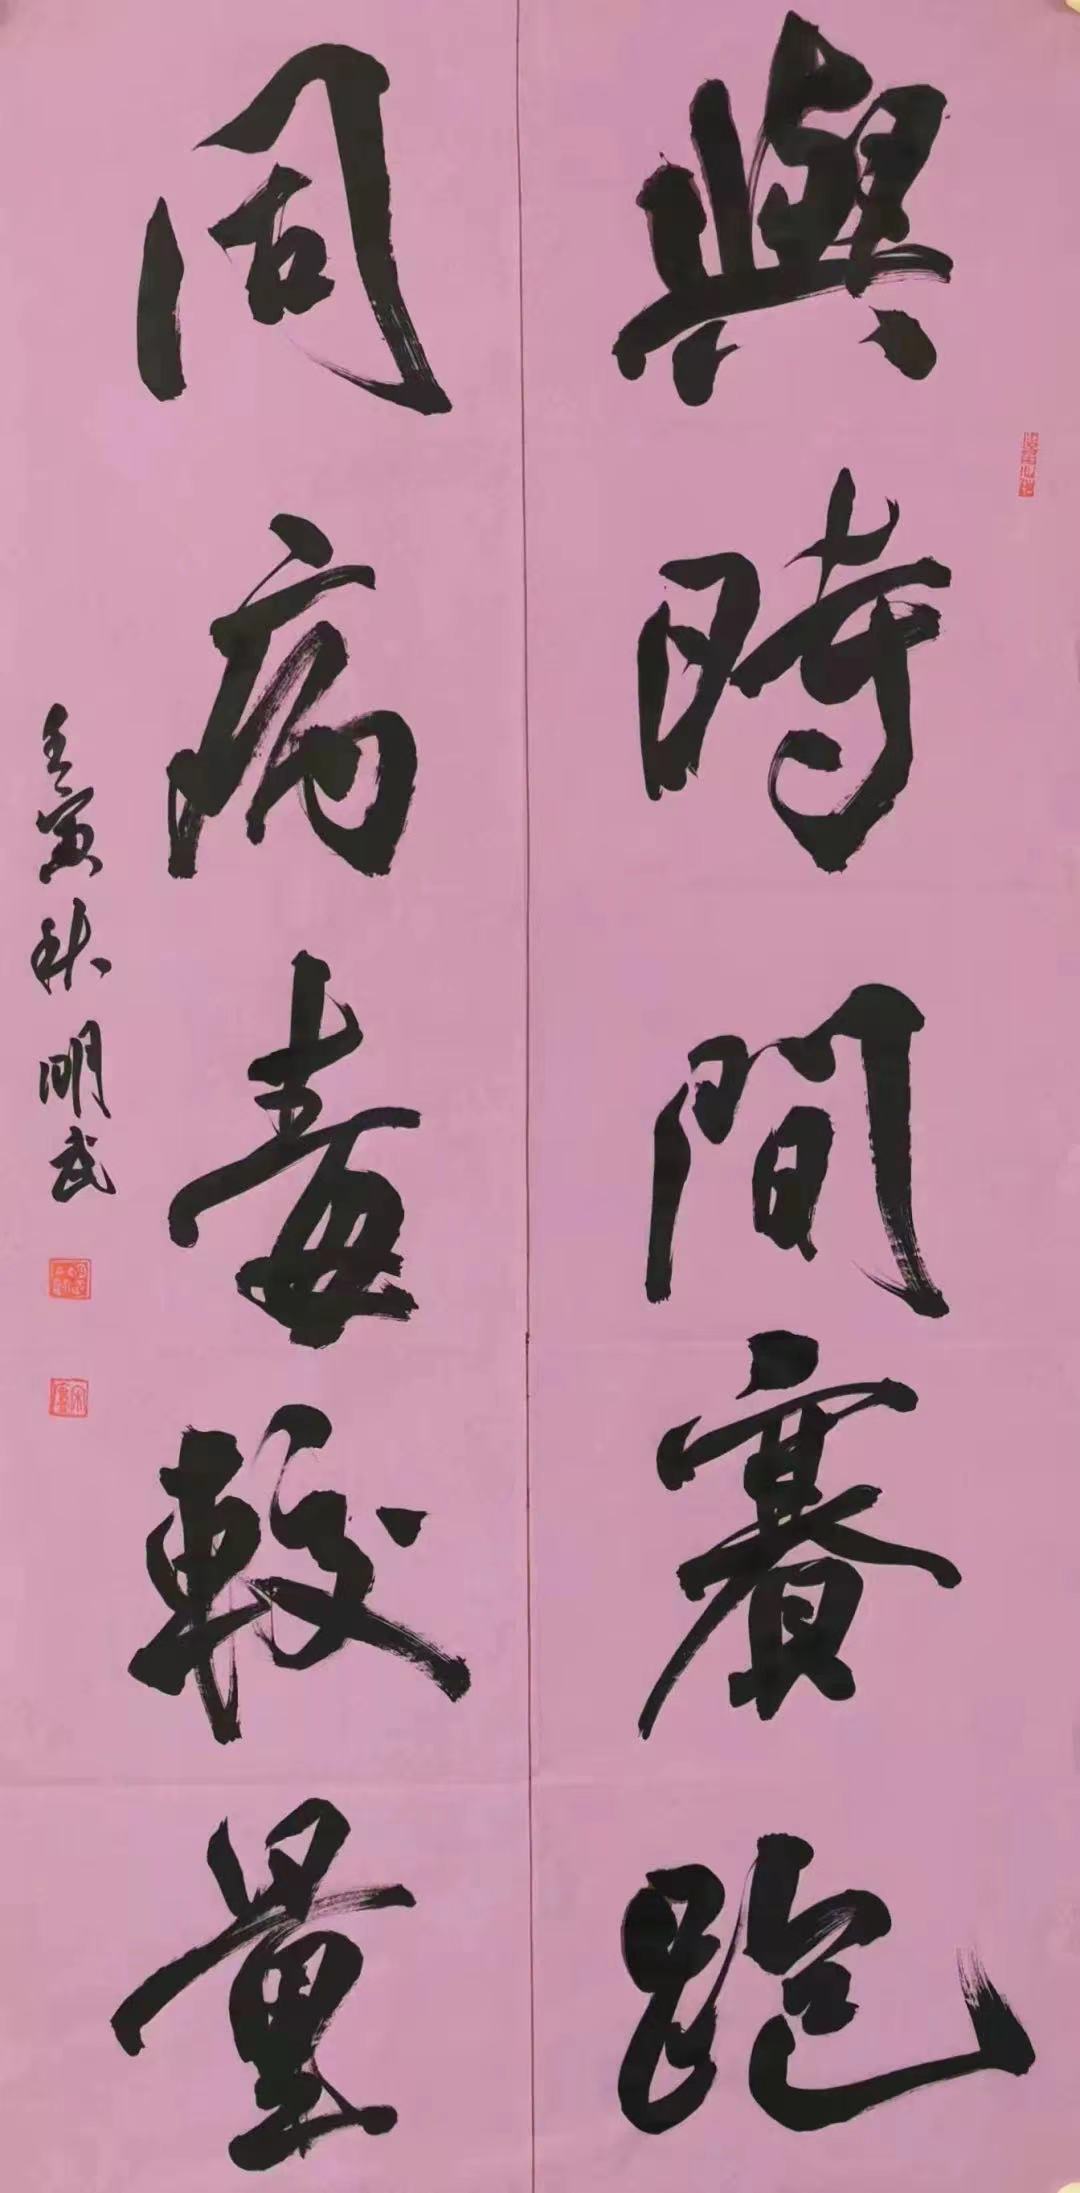 與時間賽跑
同病毒較量
壬寅秋明武